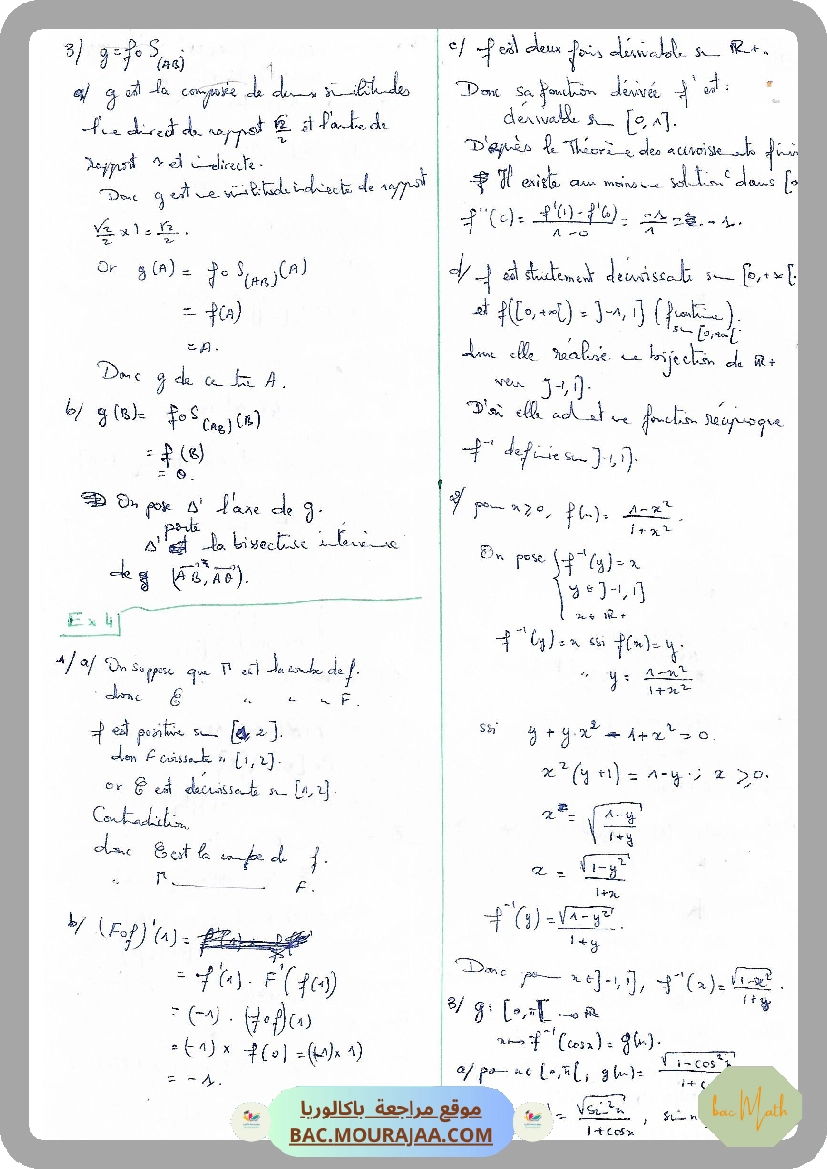 3/ g = f o S(AB)
a/ g est la composée de deux similitudes
l'une directe de rapport √2/2 et l'autre de
rapport 1 et indirecte.
Donc g est une similitude indirecte de rapport
√2/2 × 1 = √2/2.
Or g(A) = f o S(AB)(A)
= f(A)
= A.
Donc g de centre A.
b/ g(B) = f o S(AB)(B)
= f(B)
= O.
On pose Δ' l'axe de g.
Δ' porte la bissectrice intérieure
de (AB, AO).
Ex 4
1/ a/ On suppose que Γ est la courbe de f.
donc C " " " F.
f est positive sur [1,2].
donc F croissante " [1,2].
or C est décroissante sur [1,2].
Contradiction
donc C est la courbe de f.
" Γ ______ F.
b/ (Fof)'(1) =
= f'(1) . F'(f(1))
= (-1) . (fof)(1)
= (-1) × f(0) = (-1) × 1)
= -1.
c/ f est deux fois dérivable sur ℝ+.
Donc sa fonction dérivée f' est :
dérivable sur [0,1].
D'après le Théorème des accroissements finis
Il existe au moins une solution c dans [0
f''(c) = (f'(1) - f'(0))/(1-0) = -1/1 = -1.
d/ f est strictement décroissante sur [0,+∞[.
et f([0,+∞[) = ]-1,1] (f continue).
sur [0,+∞[
donc elle réalise une bijection de ℝ+
vers ]-1,1].
D'où elle admet une fonction réciproque
f⁻¹ définie sur ]-1,1].
pour x ≥ 0, f(x) = (1-x²)/(1+x²).
On pose { f⁻¹(y) = x
y ∈ ]-1,1]
x ∈ ℝ+
f⁻¹(y) = x ssi f(x) = y.
" y = (1-x²)/(1+x²)
ssi y + y.x² - 1 + x² = 0.
x²(y+1) = 1-y ; x ≥ 0.
x = √((1-y)/(1+y))
x = √(1-y²)/(1+x)
f⁻¹(y) = √(1-y²)/(1+y).
Donc pour x ∈ ]-1,1], f⁻¹(x) = √(1-x²)/(1+y).
3/ g : [0,π[ → ℝ
x ↦ f⁻¹(cosx) = g(x).
a/ pour x ∈ [0,π[, g(x) = √(1-cos²x)/(1+c
= √(sin²x)/(1+cosx), sin x
موقع مراجعة باكالوريا
BAC.MOURAJAA.COM
bac Math